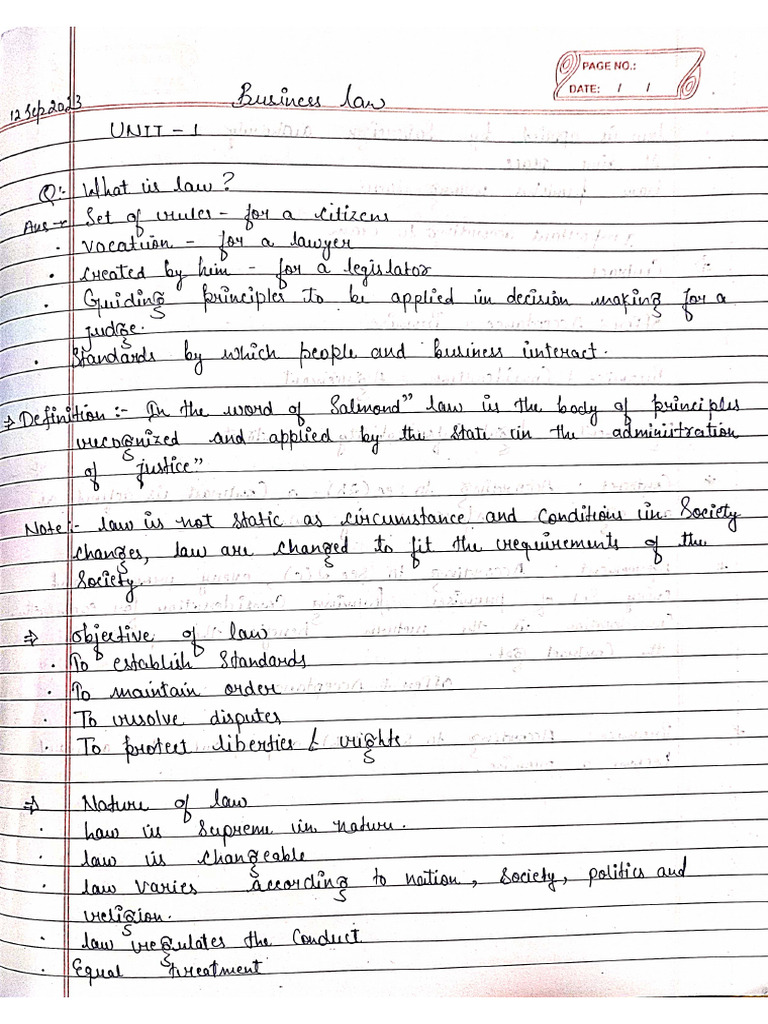 PAGE NO.:
DATE: / /
12 Sep 2023
Business law
UNIT - 1
Q:- What is law?
Ans → Set of rules - for a citizens
• vacation - for a lawyer
• created by him - for a legislator
• Guiding principles to be applied in decision making for a
judge.
• Standards by which people and business interact.
⇒ Definition :- In the word of Salmond" law is the body of principles
recognized and applied by the state in the administration
of justice"
Note:- law is not static as circumstance and conditions in Society
changes, law are changed to fit the requirements of the
Society.
⇒ objective of law
• To establish Standards
• To maintain order
• To resolve disputes
• To protect liberties & rights
⇒ Nature of law
• law is Supreme in nature.
• law is changeable
• law varies according to nation, society, politics and
religion.
• law regulates the Conduct
• Equal treatment